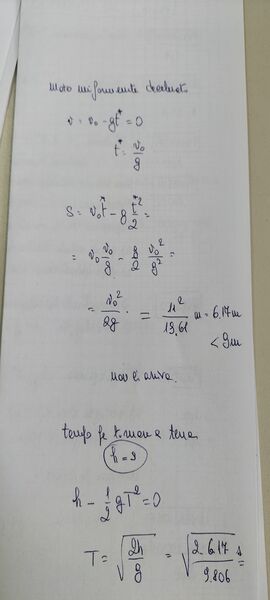 Moto uniformemente decelerato
v = v₀ - gt* = 0
t* = v₀/g
S = v₀t* - g t*²/2 =
= v₀ v₀/g - g/2 v₀²/g² =
= v₀²/2g . = 11²/19,61 m = 6.17 m
< 9 m
non ci arriva.
tempo per tornare a terra
h = 9
h - 1/2 g T² = 0
T = √(2h/g) = √(2 6.17/9.806) s =